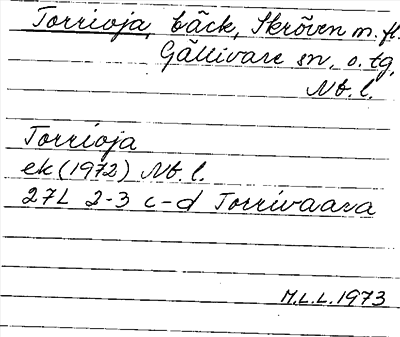 Torrioja, bäck, Skröven m.fl.
Gällivare sn. o. tg,
Nb. l.
Torrioja
ek (1972) Nb. l.
27L 2-3 c-d Torrivaara
M.L.L. 1973